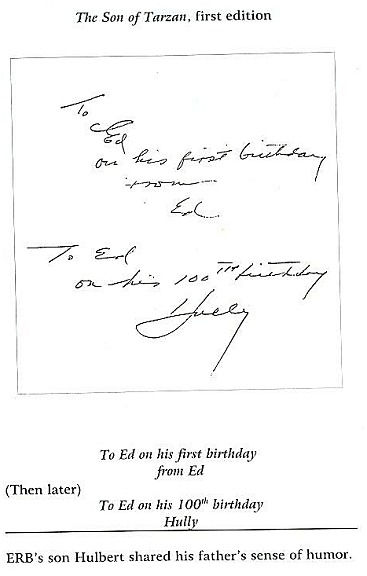 The Son of Tarzan, first edition
To
Ed
on his first birthday
from
Ed
To Ed
on his 100TH birthday
Hully
To Ed on his first birthday
from Ed
(Then later)
To Ed on his 100th birthday
Hully
ERB's son Hulbert shared his father's sense of humor.